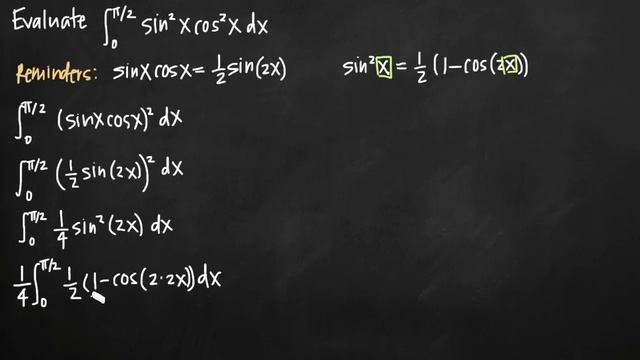 Evaluate ∫₀^{π/2} sin²x cos²x dx
Reminders: sinx cosx = 1/2 sin(2x)    sin²x = 1/2 (1 − cos(2x))
∫₀^{π/2} (sinx cosx)² dx
∫₀^{π/2} (1/2 sin(2x))² dx
∫₀^{π/2} 1/4 sin²(2x) dx
1/4 ∫₀^{π/2} 1/2 (1 − cos(2·2x)) dx